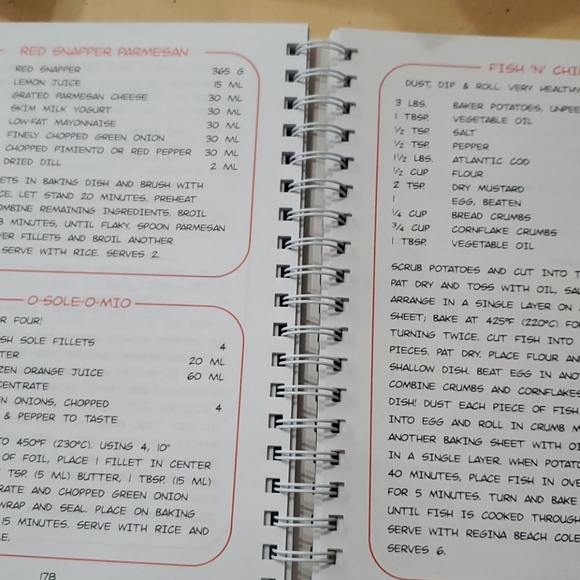 RED SNAPPER PARMESAN
RED SNAPPER 365 G
LEMON JUICE 15 ML
GRATED PARMESAN CHEESE 30 ML
SKIM MILK YOGURT 30 ML
LOW-FAT MAYONNAISE 30 ML
FINELY CHOPPED GREEN ONION 30 ML
CHOPPED PIMIENTO OR RED PEPPER 30 ML
DRIED DILL 2 ML
ETS IN BAKING DISH AND BRUSH WITH
CE. LET STAND 20 MINUTES. PREHEAT
OMBINE REMAINING INGREDIENTS. BROIL
8 MINUTES, UNTIL FLAKY. SPOON PARMESAN
VER FILLETS AND BROIL ANOTHER
SERVE WITH RICE. SERVES 2.
O-SOLE-O-MIO
R FOUR!
SH SOLE FILLETS 4
TER 20 ML
ZEN ORANGE JUICE 60 ML
CENTRATE
N ONIONS, CHOPPED 4
& PEPPER TO TASTE
TO 450°F (230°C). USING 4, 10"
OF FOIL, PLACE 1 FILLET IN CENTER
TSP. (5 ML) BUTTER, 1 TBSP. (15 ML)
RATE AND CHOPPED GREEN ONION
WRAP AND SEAL. PLACE ON BAKING
15 MINUTES. SERVE WITH RICE AND
E.
178
FISH 'N' CHI
DUST, DIP & ROLL VERY HEALTHY
3 LBS. BAKER POTATOES, UNPEE
1 TBSP. VEGETABLE OIL
½ TSP. SALT
½ TSP. PEPPER
1½ LBS. ATLANTIC COD
½ CUP FLOUR
2 TSP. DRY MUSTARD
1 EGG, BEATEN
¼ CUP BREAD CRUMBS
¾ CUP CORNFLAKE CRUMBS
1 TBSP. VEGETABLE OIL
SCRUB POTATOES AND CUT INTO T
PAT DRY AND TOSS WITH OIL, SAL
ARRANGE IN A SINGLE LAYER ON
SHEET; BAKE AT 425°F (220°C) FO
TURNING TWICE. CUT FISH INTO
PIECES. PAT DRY. PLACE FLOUR AN
SHALLOW DISH. BEAT EGG IN ANO
COMBINE CRUMBS AND CORNFLAKES
DISH! DUST EACH PIECE OF FISH
INTO EGG AND ROLL IN CRUMB M
ANOTHER BAKING SHEET WITH OI
IN A SINGLE LAYER. WHEN POTATO
40 MINUTES, PLACE FISH IN OVE
FOR 5 MINUTES. TURN AND BAKE
UNTIL FISH IS COOKED THROUGH
SERVE WITH REGINA BEACH COLE
SERVES 6.